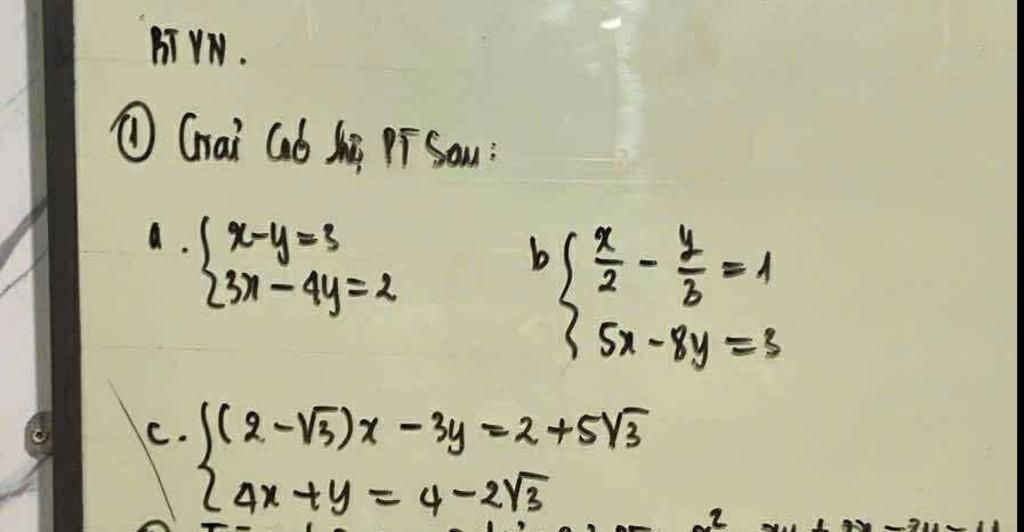 BTVN.
① Giải các hệ PT Sau:
a. { x-y=3
3x-4y=2
b { x/2 - y/3 = 1
5x-8y=3
c. { (2-√3)x - 3y = 2+5√3
4x+y = 4-2√3